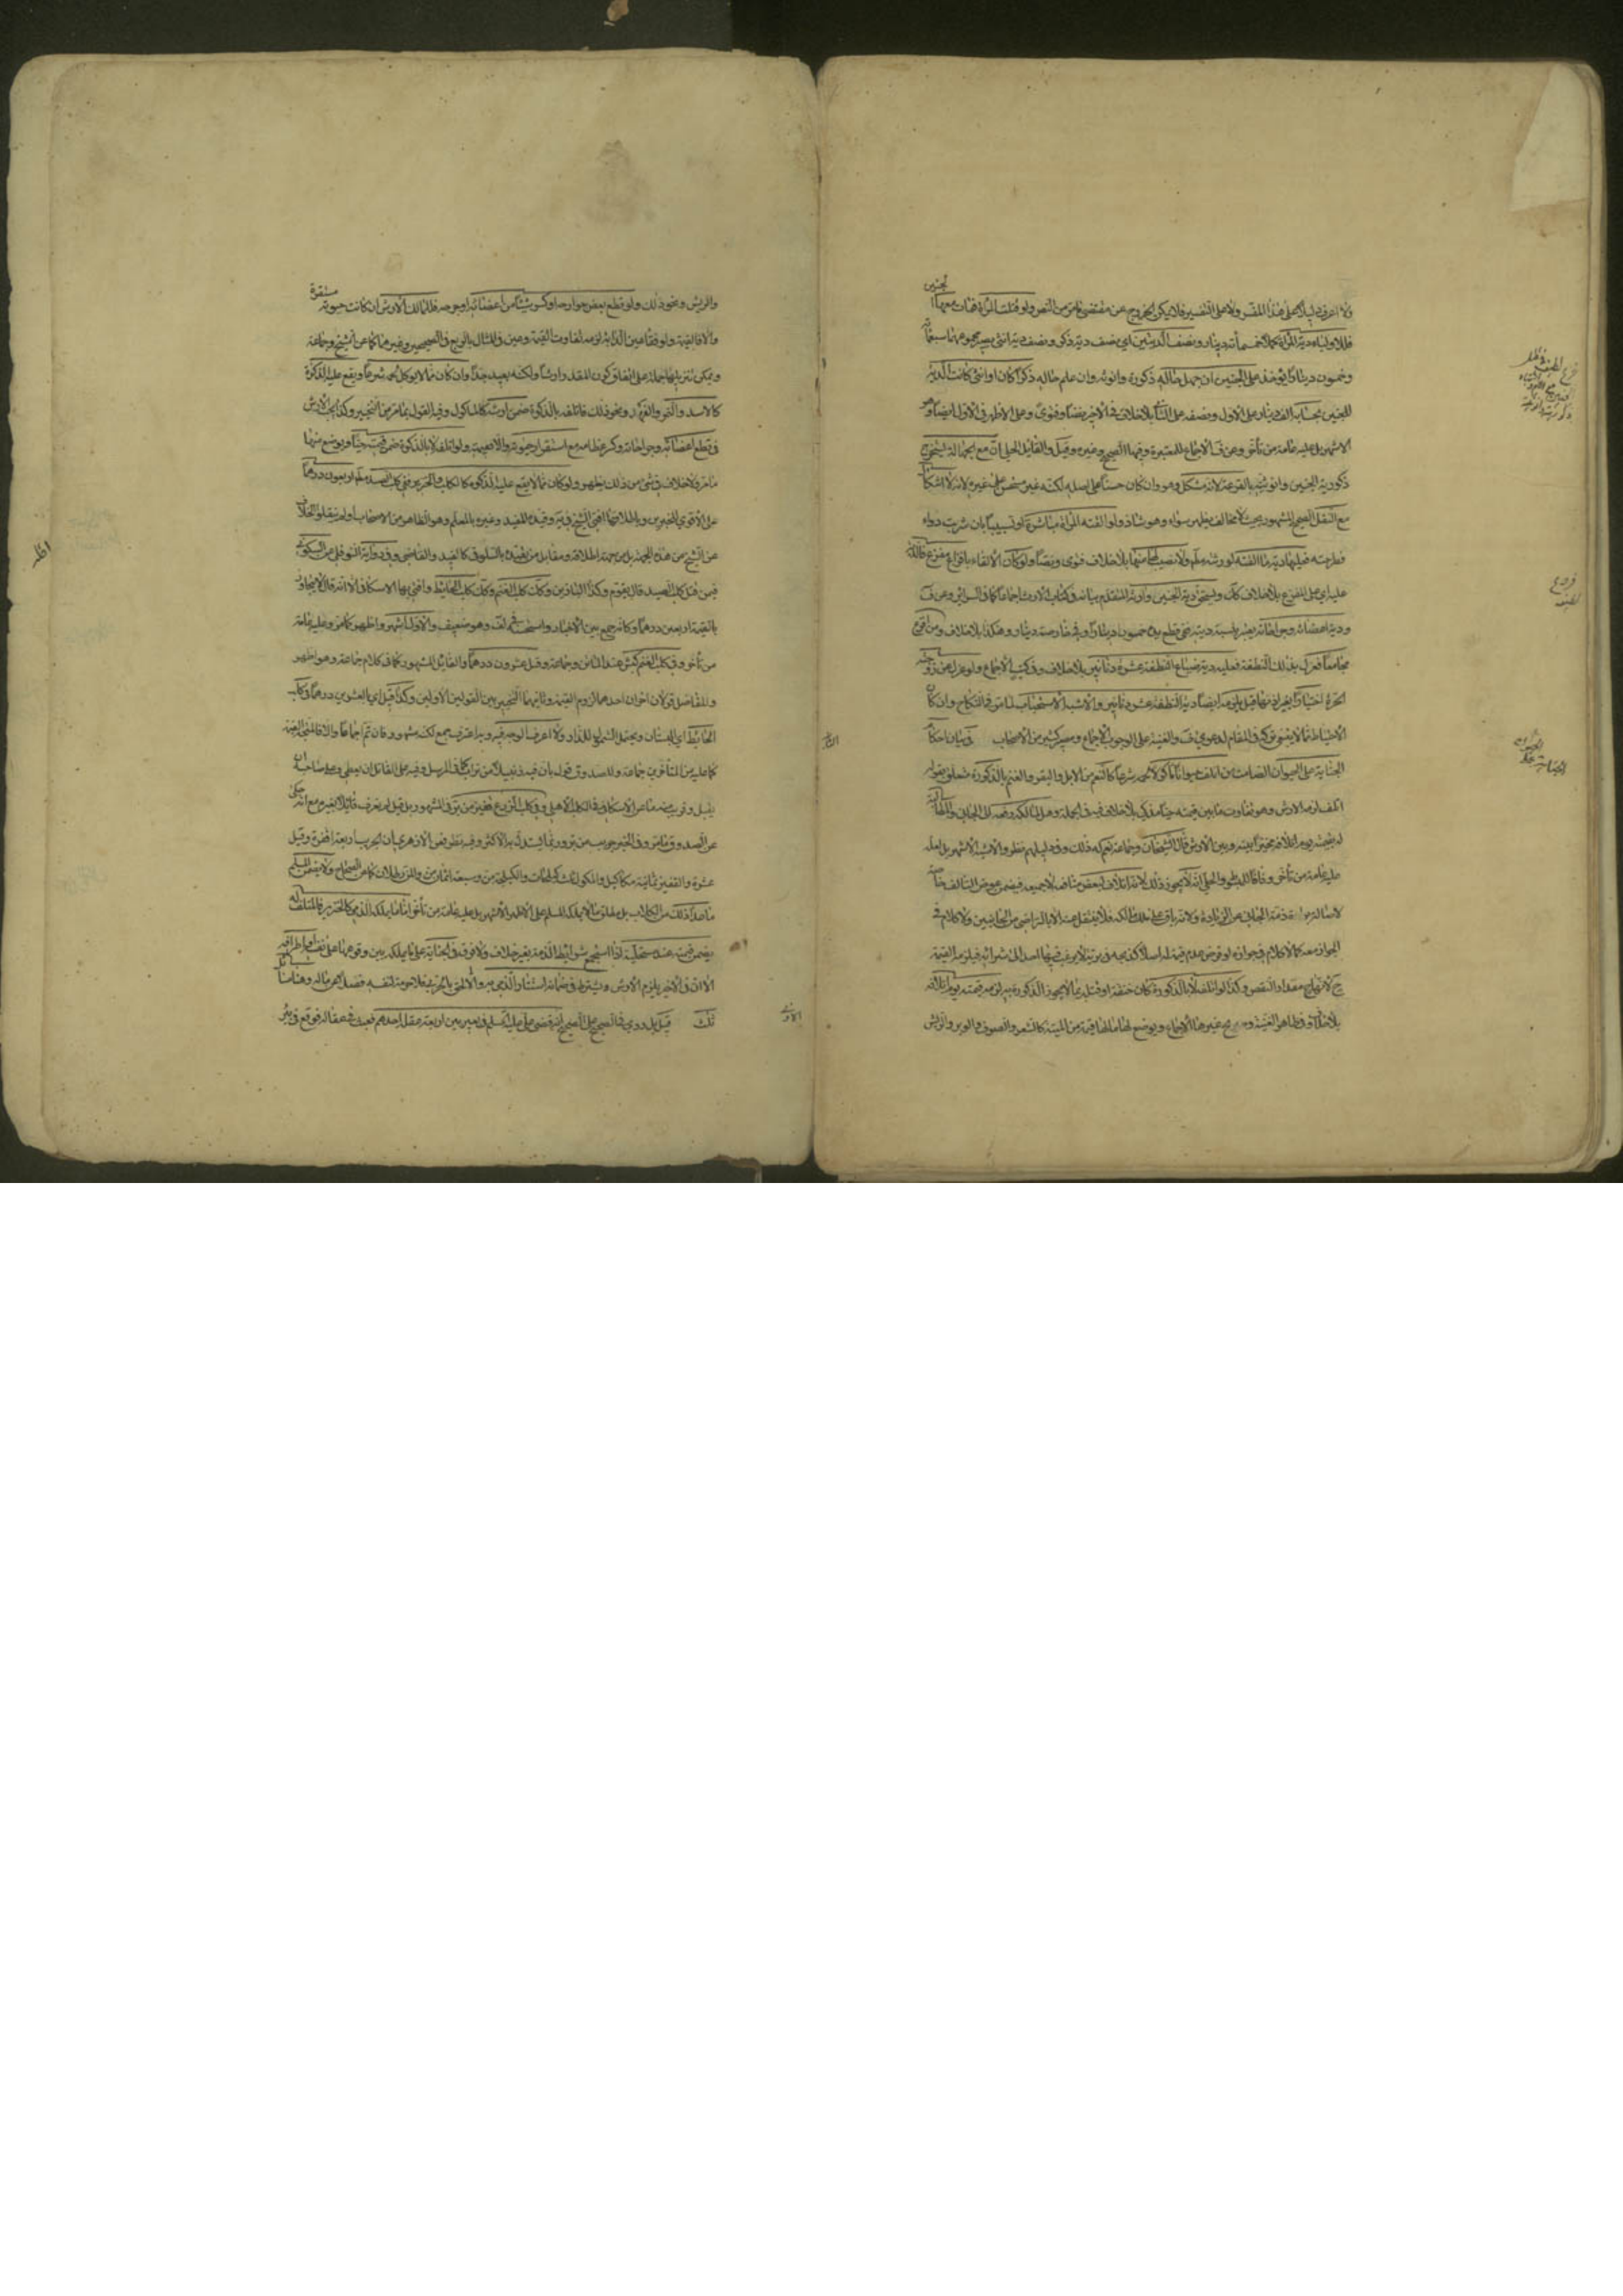 ولا اعرف دليلا على هذا المقس ولا على التفسير فلا يمكن الخروج عن مقتضى ما مر من النص ولو قتلت المراة فمات معها الجنين
فللاولياء دية المراة كملا خمسمائة دينار ونصف الديتين اي نصف دية ذكر ونصف دية انثى يصير مجموعها سبعمائة
وخمسون دينارا يؤخذ على الجنين ان جهل حاله ذكورة وانوثة وان علم حاله ذكرا كان او انثى كانت الدية
للجنين بحسابه الف دينار على الاول ونصفه على الثاني بلا خلاف في الاخير نصا وفتوى وعلى الاظهر في الاول ايضا وهو
الاشهر بل عليه عامة من تأخر وعن الاجماع المعتبرة وفيها الصحيح وغيره وقيل والقايل الحلي ان مع الجهالة يستخرج
ذكورية الجنين وانوثيته بالقرعة لانه مشكل وهو وان كان حسنا على اصله لكنه غير مستحسن على غيره لانه لا اشكال
مع النقل الصحيح المشهور بحيث لا مخالف يظهر سواه وهو شاذ ولو القته المراة مباشرة او تسبيبا بان شربت دواء
فطرحته فعليها دية ما القته لورثته ولا نصيب لها منها بلا خلاف فتوى ونصا ولو كان الالقاء بافزاع مفزع فالدية
عليه اي على المفزع بلا خلاف ويستحق دية الجنين وارث المتقدم بيانه في كتاب الارث اجماعا كما في السرائر وعن
ودية اعضائه وجراحاته بنسبة ديته ففي قطع يده خمسون دينارا وفي حارصته دينار وهكذا بلا خلاف ومن افزع
مجامعا فعزل بذلك النطفة فعليه دية ضياع النطفة عشرة دنانير بلا خلاف وفي كتب الاجماع ولو عزل عن زوجته
الحرة اختيارا بغير اذنها قيل يلزمه ايضا دية النطفة عشرة دنانير والاشبه الاستحباب لما مر في النكاح وان كان
الاحتياط مما لا ينبغي تركه في المقام لدعوى والغنية على الوجوب الاجماع ومصير كثير من الاصحاب في بيان احكام
الجناية على الحيوان الصامت من اتلف حيوانا ماكولا لحمه شرعا كالنعم من الابل والبقر والغنم بالذكوة متعلق بقوله
اتلف لزمه الارش وهو تفاوت ما بين قيمته حيا ومذكى بلا خلاف فيه في الجملة وهل لمالكه دفعه الى الجاني والمطالبة
له بقيمته يوم اتلافه مخيرا بينه وبين الارش قال الشيخان وجماعة نعم له ذلك وفي دليلهم نظر والاشبه الاشهر بل لعله
عليه عامة من تأخر وفاقا للمبسوط والحلي انه لا يجوز ذلك لانه اتلاف لبعض منافعه لا جميعه فيضمن عوض التالف خاصة
لاصالة براءة ذمة الجاني عن الزيادة ولانه باق على ملك مالكه فلا ينتقل عنه الا بالتراضي من الجانبين ولا كلام في
الجواز معه كما لا كلام في جوازه لو فرض عدم قيمة له اصلا كذبحه في برية لا يرغب فيها احد الى شرائه فيلزمه القيمة
ح لانها ح مقدار النقص وكذا لو اتلفه لا بالذكوة كان خنقه او قتله بما لا يجوز الذكوة به لزمه قيمته يوم اتلافه
بلا خلاف وفي ظاهر الغنية وصريح غيرها الاجماع ويوضع لها ماله قيمة من الميتة كالشعر والصوف والوبر والريش
والريش ونحو ذلك ولو قطع بعض جوارحه او كسر شيئا من اعضائه او جرحه فللمالك الارش ان كانت حيوته مستقرة
والا فالقيمة ولو فقأ عين الدابة لزمه تفاوت القيمة وعين والمثال بالربع في الصحيحين وغيرهما كما عن الشيخ وجماعة
ويمكن تنزيلها جملة على اتفاق كون المقدر ارشا ولكنه بعيد جدا وان كان مما لا يؤكل لحمه شرعا ويقع عليه الذكوة
كالاسد والنمر والفهد ونحو ذلك فاتلفه بالذكوة ضمن ارشه كالماكول وفيه القول بما مر من التخيير وكذا يجب الارش
في قطع اعضائه وجراحاته وكسر عظامه مع استقرار حيوته والا فقيمته ولو اتلفه لا بالذكوة ضمن قيمته حيا ويوضع منها
ما مر ولا خلاف في شيء من ذلك يظهر ولو كان مما لا يقع عليه الذكوة كالكلب والخنزير ففي كلب الصيد اربعون درهما
على الاقوى للخبرين وباطلاقهما افتى الشيخ في يه وقيده المفيد وغيره بالمعلم وهو الظاهر من الاصحاب ولم ينقلوا الخلاف
عن الشيخ من هذه الجهة بل من جهة اطلاقه ومقابل من يقيده بالسلوقي كالمفيد والقاضي وفي رواية النوفلي عن السكوني
فيمن قتل كلب الصيد قال يقوم وكذا البازي وكذلك كلب الغنم وكذلك كلب الحائط وافتى بها الاسكافي الا انه قال لا يتجاوز
بالقيمة اربعين درهما وكانه جمع بين الاخبار واستحسنه في لف وهو ضعيف والاول اشهر واظهر كما مر وعليه عامة
من تأخر وفي كلب الغنم كبش عند الماتن وجماعة وقيل عشرون درهما والقائل المشهور كما في كلام جماعة وهو اظهر
وللفاضل قولان اخران احدهما لزوم القيمة وثانيهما التخيير بين القولين الاولين وكذا قيل اي بالعشرين درهما في كلب
الحائط اي البستان ويحتمل الشمول للدار ولا اعرف الوجه فيه وبه اعترف جمع لكنه مشهور فان تم اجماعا والا فالمتجه القيمة
كما عليه من المتأخرين جماعة وللصدوق قول بان فيه زنبيلا من تراب كما في المرسل وفيه على القاتل ان يعطي وعلى صاحبه ان
يقبل وقريب منه ما عن الاسكافي في الكلب الاهلي وفي كلب الزرع قفيز من بر في المشهور بل قيل لم يعرف قائلا بغيره مع انه حكى
عن الصدوق ما مر وفي الخبر جريب من بر وربما يستدل به للاكثر وفيه نظر فعن الازهري ان الجريب اربعة اقفزة وقيل
عشرة والقفيز ثمانية مكاكيك والمكوك ثلث كيلجات والكيلجة من وسبعة اثمان من والمن رطلان كما عن الصحاح ولا يضمن المسلم
ما عدا ذلك من الكلاب بل مطلق ما لا يملكه المسلم على الاظهر الاشهر بل عليه عامة من تأخر اما ما يملكه الذمي كالخنزير فالمتلف له
يضمن قيمته عند مستحليه اذا استجمع شرائط الذمة بغير خلاف ولا فرق في الجناية على ما يملكه بين وقوعها على نفسه او اطرافه
الا ان في الاخير يلزم الارش ويشترط في ضمانه استتار الذمي به والا لحق بالحربي فلا حرمة لنفسه فضلا عن ماله وهنا مسائل
ثلث قيل بل روي في الصحيح على الصحيح انه قضى علي عليه السلم في بعير بين اربعة عقل احدهم فعبث في عقاله فوقع في بئر